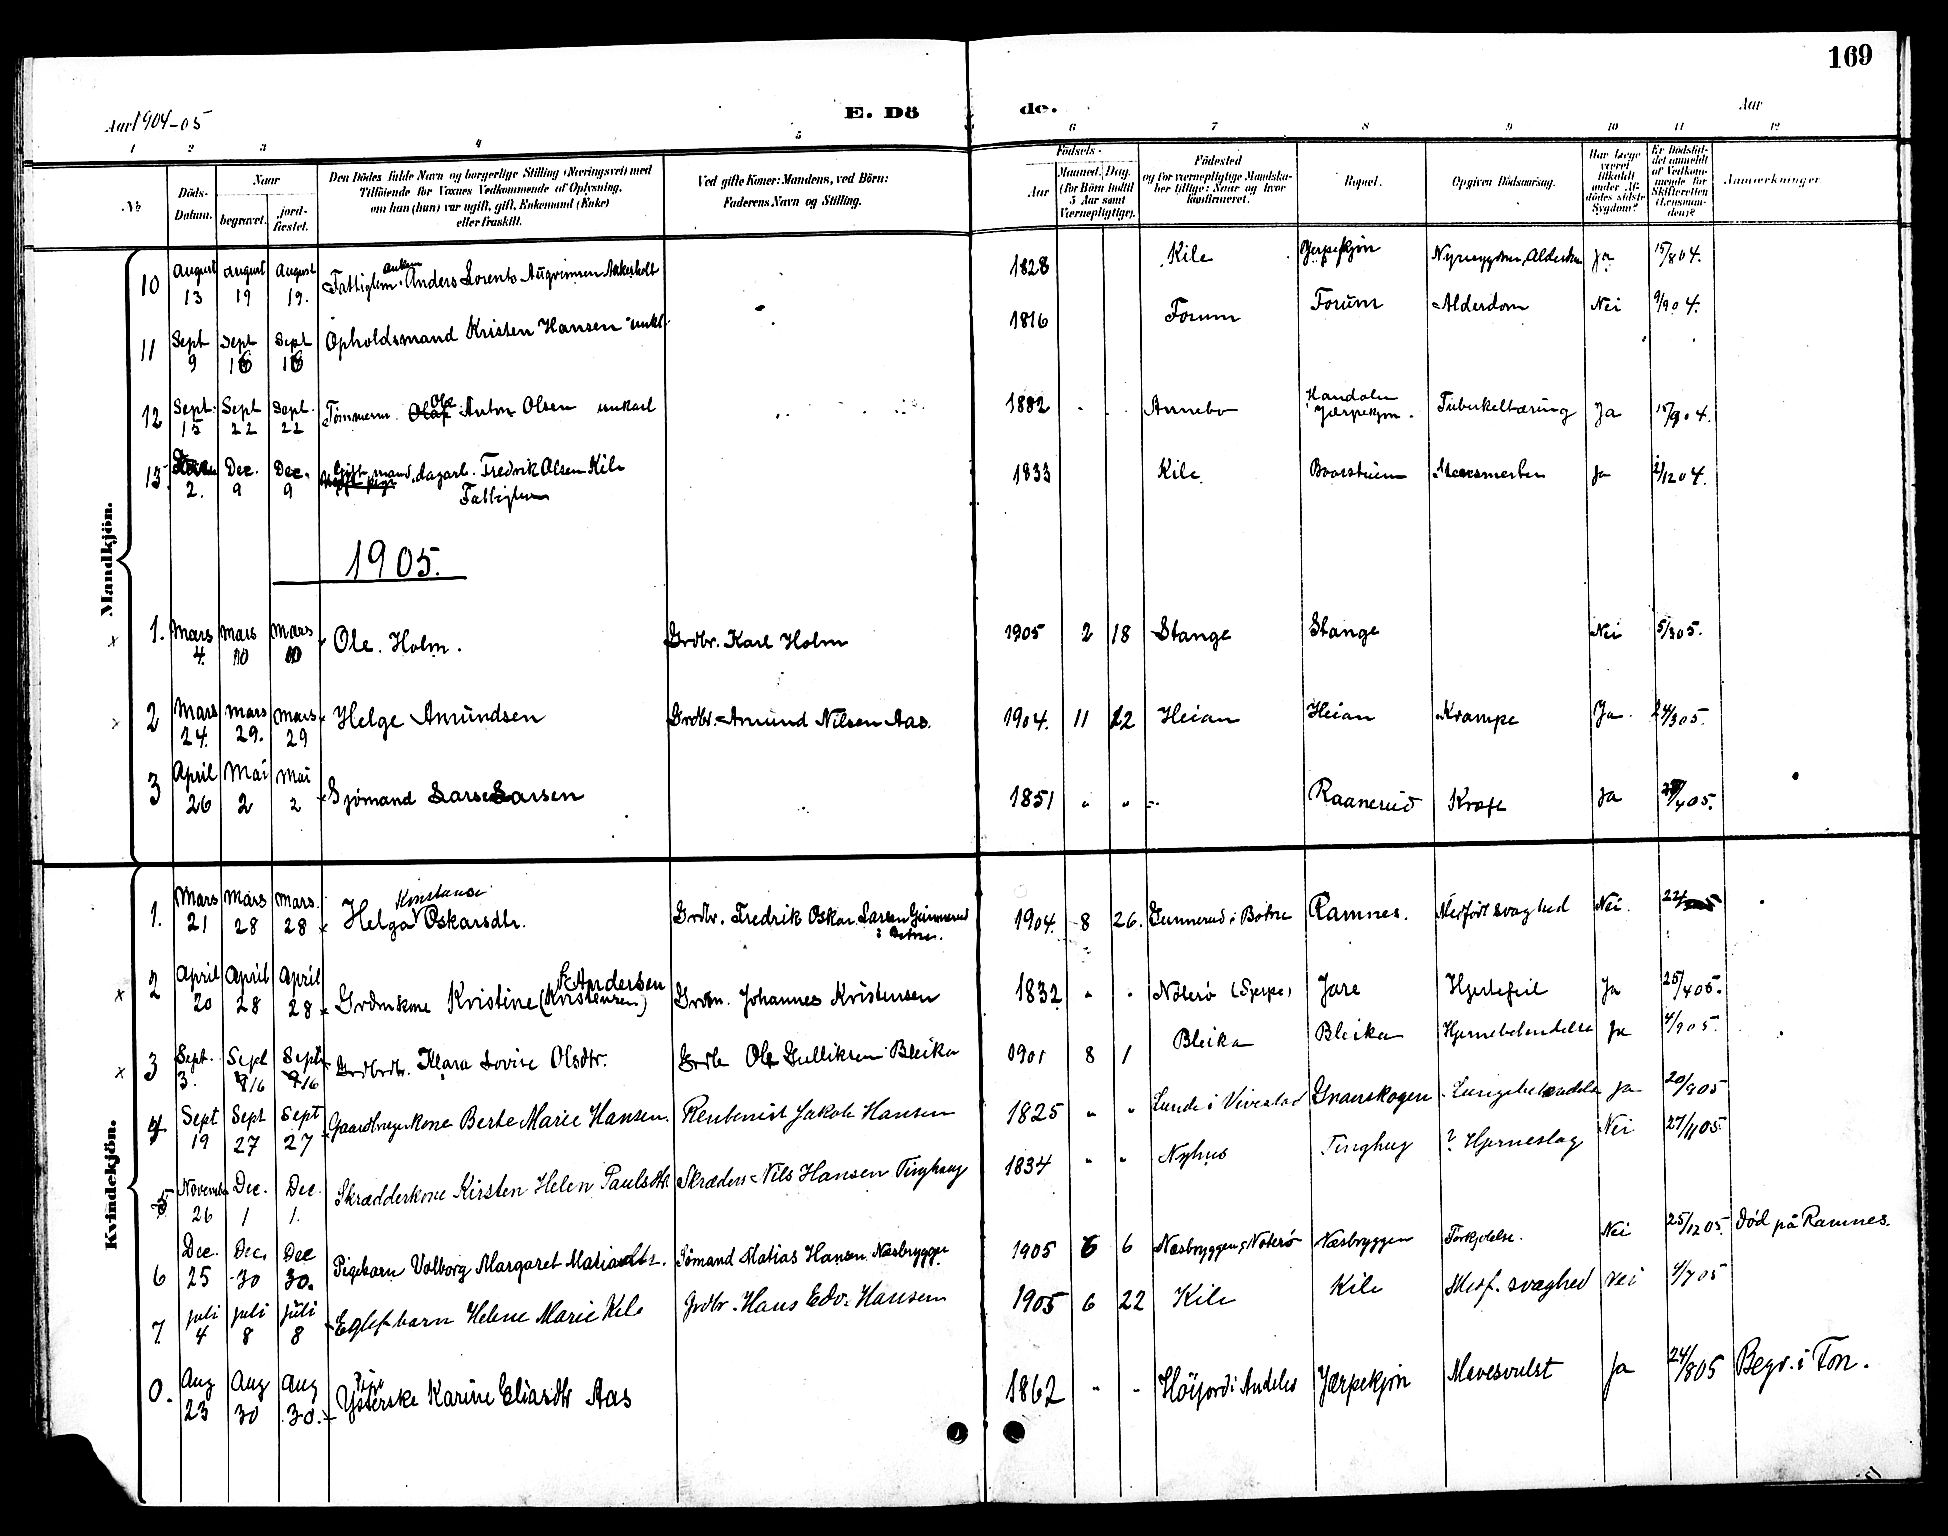 169
Aar 1904-05
E. Dö de.
Aar
1 2 3 4 5 6 7 8 9 10 11 12
№
Döds-Datum.
Naar
begravet.
jordfæstet.
Den Dödes fulde Navn og borgerlige Stilling (Næringsvei) med Tilföiende for Voxnes Vedkommende af Oplysning, om han (hun) var ugift, gift, Enkemand (Enke) eller fraskilt.
Ved gifte Koner: Mandens, ved Börn: Faderens Navn og Stilling.
Födsels-
Aar
Maaned. Dag.
(for Börn indtil 5 Aar samt Værnepligtige).
Födested og for værnepligtige Mandskaber tillige: Naar og hvor konfirmeret.
Bopæl.
Opgiven Dödsaarsag.
Har Læge været tilkaldt under Afdödes sidste Sygdom?
Er Dödsfaldet anmeldt af Vedkommende for Skifteretten (Lensmanden)?
Anmærkninger
Mandkjön.
10 August 13 August 19 August 19. Fattiglem Anders Lorents Akersholt 1828 Kile Jerpekjøn Ja 15/8 04.
11 Sept 9 Sept 16 Sept 16 Opholdsmand Kristen Hansen 1816 Forum Forum Alderdom Nei 9/9 04.
12 Sept. 15 Sept 22 Sept. 22 Tømmerm. Olaf Ole Anton Olsen unkarl 1882 Annebo Jærpekjøn. Tuberkeltæring Ja 15/9 04.
13. 2. Dec. 9 Dec. 9 Gift mand, dagarb. Fredrik Olsen Kile Fattiglem 1833 Kile Ja 2/12 04.
1905.
1. Mars 4. Mars 10 Mars 10 Ole Holm. Grdbr. Karl Holm 1905 2 18 Stange Stange Nei 5/3 05.
2 Mars 24. Mars 29. Mars 29 Helge Amundsen Grdbr. Amund Nilsen Aas. 1904. 11 22 Heian Heian Krampe Ja. 24/3 05.
3 April 26 Mai 2 Mai 2 Sjømand Lars Larsen 1851 " " Raanerud Kræft Ja /4 05.
Kvindekjön.
1. Mars 21 Mars 28 Mars. 28 Helga Konstanse Oskarsdtr. Grdbr. Fredrik Oskar Larsen Gunnerud i Botne. 1904. 8 26. Gunnerud i Botne Ramnes. Medfödt svaghed Nei. 22/
2 April 20 April 28 April 28 Grdmkone Kristine (Kristensen) Andersen Grdm. Johannes Kristensen 1832 " " Nöterö Jare Hjertefeil Ja 25/4 05.
3 Sept. 3. Sept 16 Sept 16 Klara Lovise Olsdtr. Ole Gulliksen Bleika 1901 8 1 Bleika Bleika Hjernebetendelse Ja 4/9 05.
4 Sept 19 Sept 27 Sept 27 Gaardbrugerkone Berte Marie Hansen. Rentenist Jakob Hansen 1825 " " Lunde i Vivestad Graaeskogen Lungebetændelse Ja 20/9 05
5 November 26 Dec. 1 Dec. 1. Skrædderkone Kirsten Helen Paulsdtr Skrædder Nils Hansen Tinghaug 1834 " " Nyhus Tinghug ? Hjerneslag Nei 27/11 05.
6 Dec. 25 Dec. 30 Dec 30. Pigebarn Valborg Margaret Matiasdtr. Sømand Matias Hansen Næsbryggen 1905 6 6 Næsbryggen, Nøterø Næsbryggen Forkjølelse. Nei 25/12 05. Død på Ramnes.
7 juli 4 juli 8 juli 8 Egtef. barn Helene Marie Kile Grdbr. Hans Edv. Hansen 1905 6 22 Kile Kile Medf. svaghed Nei 4/7 05
0. Aug 23 Aug 30 Aug 30. Pige Karine Eliasdtr Aas 1862 " " Höijord i Andebo Jærpekjøn Mavesvulst Ja 24/8 05 Begr. i Fon.